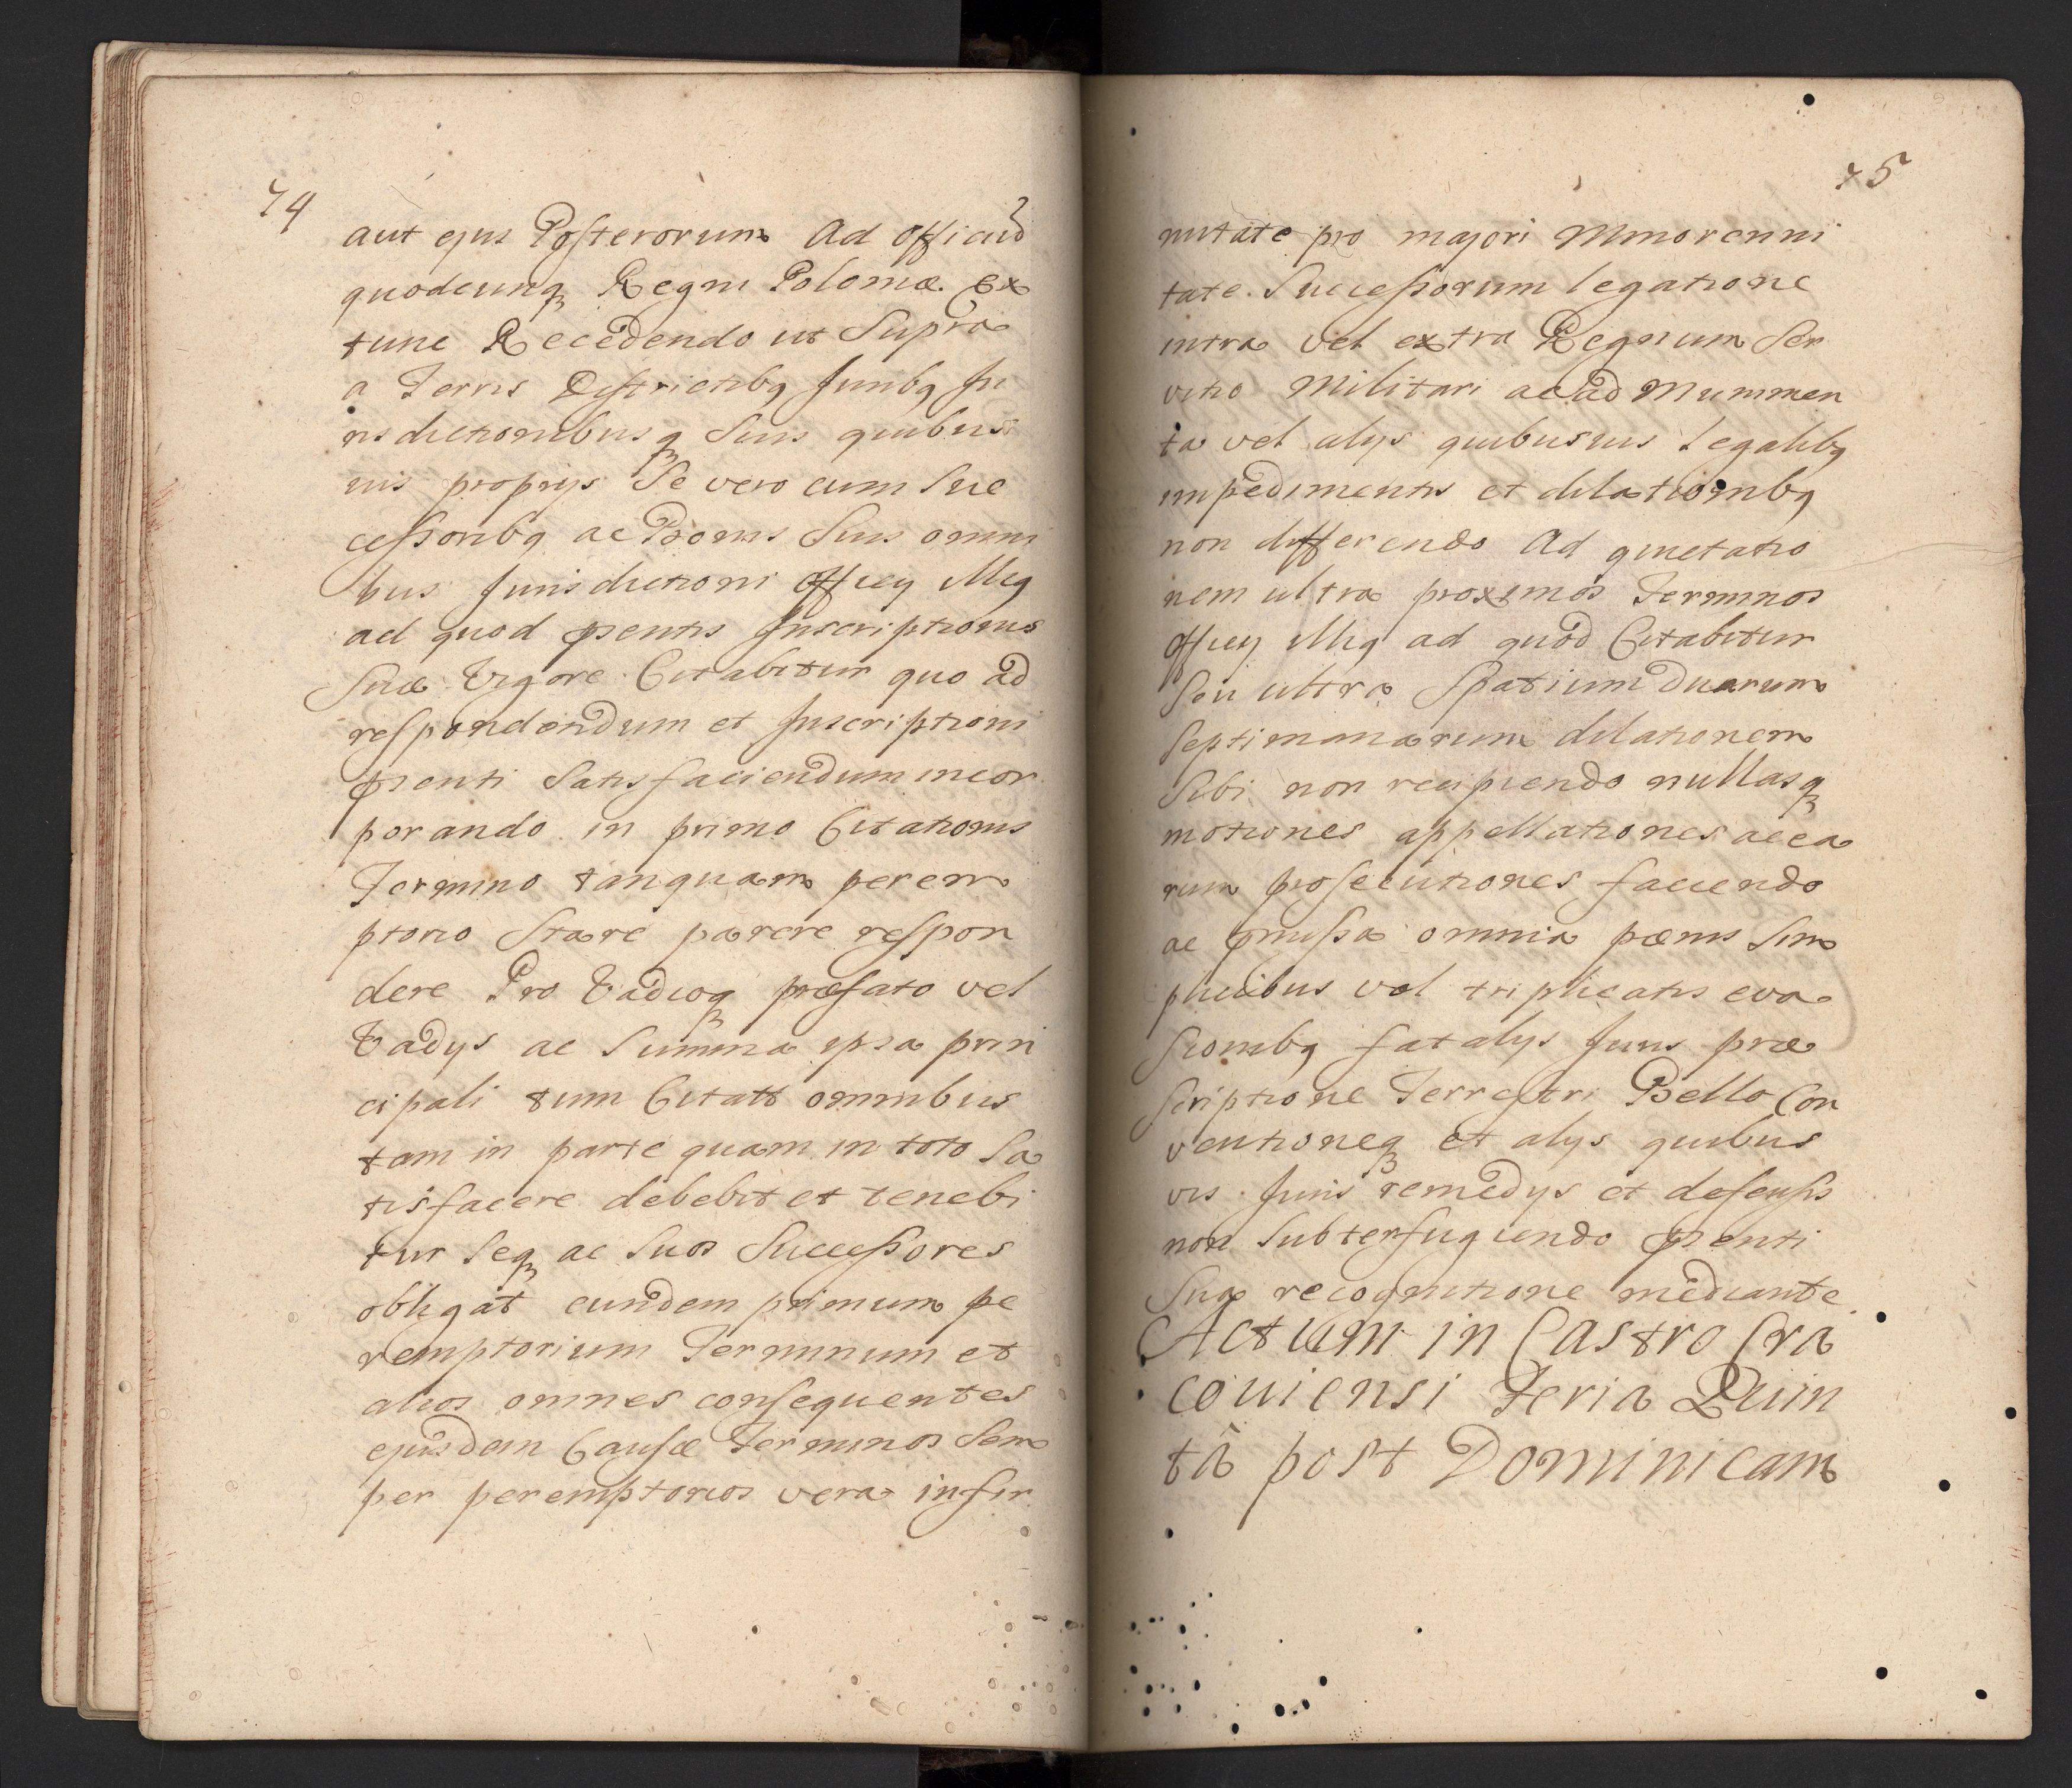 74
aut ejus Posterorum Ad officiũ
quodcunq Regni Poloniæ Ex
tunc Recedendo ut Supra
a Terris Districtibq Juribq Ju
risdictionibusq Suis quibus
uis proprijs Se vero cum Suc
cessoribq ac Bonis Suis omni
bus Jurisdictioni Officy Illiq
ad quod pñtis Inscriptionis
Suæ Vigore Citabitur quo ad
respondendum et Inscriptioni
pñsenti Satisfaciendum incor
porando in primo Citationis
Termino tanquam perem
ptorio Stare parere respon
dere Pro Vadioq præfato vel
Vadys ac Summa ipsa prin
cipali tum Citatt omnibus
tam in parte quam in toto Sa
tisfacere debebit et tenebi
tur Seq ac Suos Successores
obligat eundem primum pe
remptorium Terminum et
alios omnes consequentes
ejusdem Causæ Terminos Sem
per peremptorios vera infir
75
mitate pro majori Minorenni
tate Successorum legatione
intra vel extra Regnum Ser
vitio Militari ac ad Munimen
ta vel alys quibusuis Legalibq
impedimentis et dilationibq
non differendo Ad quietatio
nem ultra proximos Terminos
Officy Illiq ad quod Citabitur
Seu ultra Spatium duarum
Septimanarum dilationem
Sibi non recipiendo nullasq
motiones appellationes ac ea
rum prosecutiones faciendo
ac præmissa omnia pœnis Sim
plicibus vel triplicatis eva
sionibq fatalys Juris præ
scriptione Terrestri Bello Con
ventioneq et alys quibus
vis Juris remedys et defensis
non Subterfugiendo pñsenti
Sua recognitione mediante
Actum in Castro Cra
couiensi Feria Quin
tâ post Dominicam